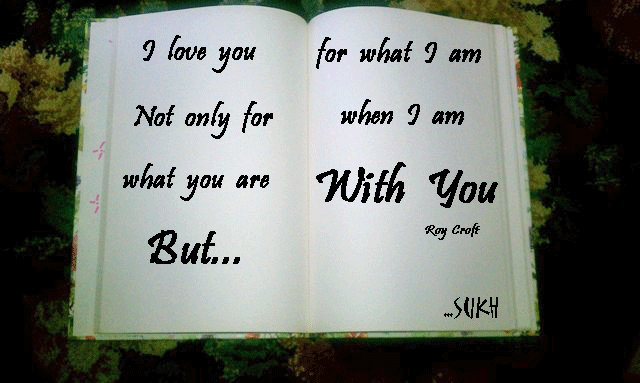 I love you
Not only for
what you are
But...
for what I am
when I am
With You
Roy Croft
...SUKH